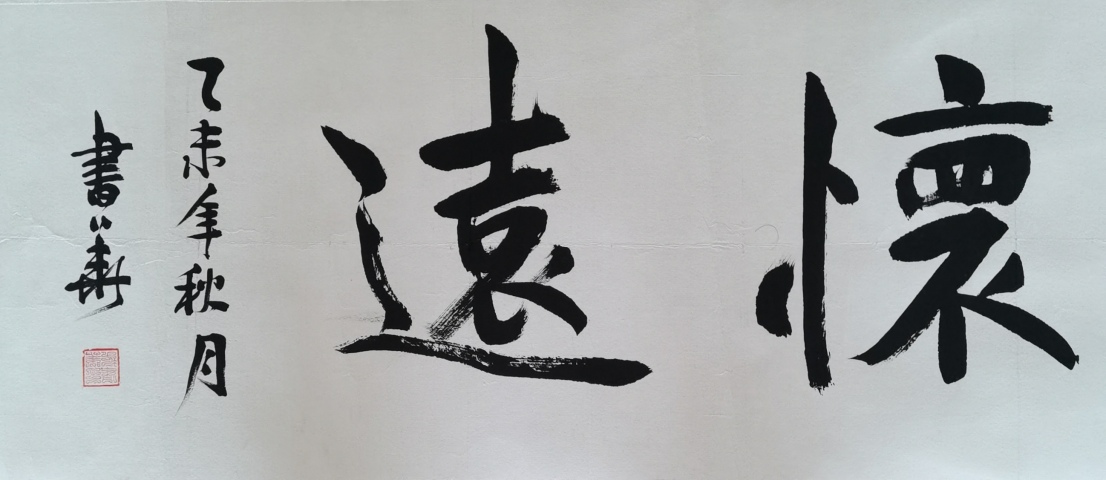 懷遠
乙未年秋月
書華